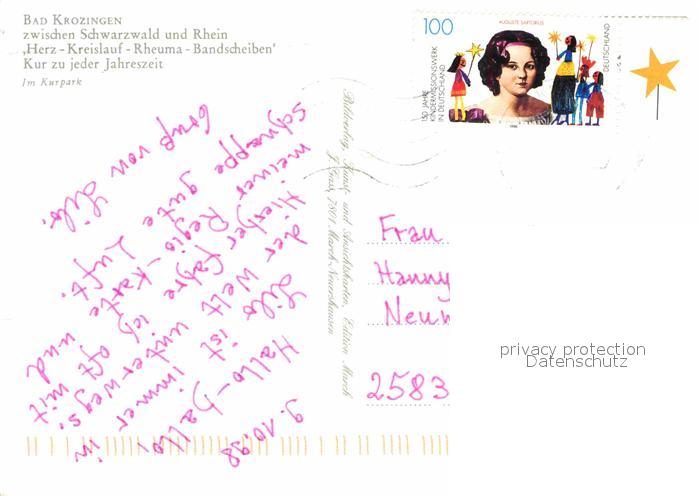 BAD KROZINGEN
zwischen Schwarzwald und Rhein
‚Herz - Kreislauf - Rheuma - Bandscheiben'
Kur zu jeder Jahreszeit
Im Kurpark
100
AUGUSTE SARTORIUS
150 JAHRE
KINDERMISSIONSWERK
IN DEUTSCHLAND
DEUTSCHLAND
1996
Bildverlag, Kunst- und Ansichtskarten, Edition March
7801 March-Neuershausen
9.10.98
Hallo - Hallo,
Lilo ist immer in
der Welt unterwegs.
Hierher fahre ich oft mit
meiner Regio-Karte und
schnappe gute Luft.
Gruß von Lilo.
Frau
Hanny
Neu
2583
privacy protection
Datenschutz